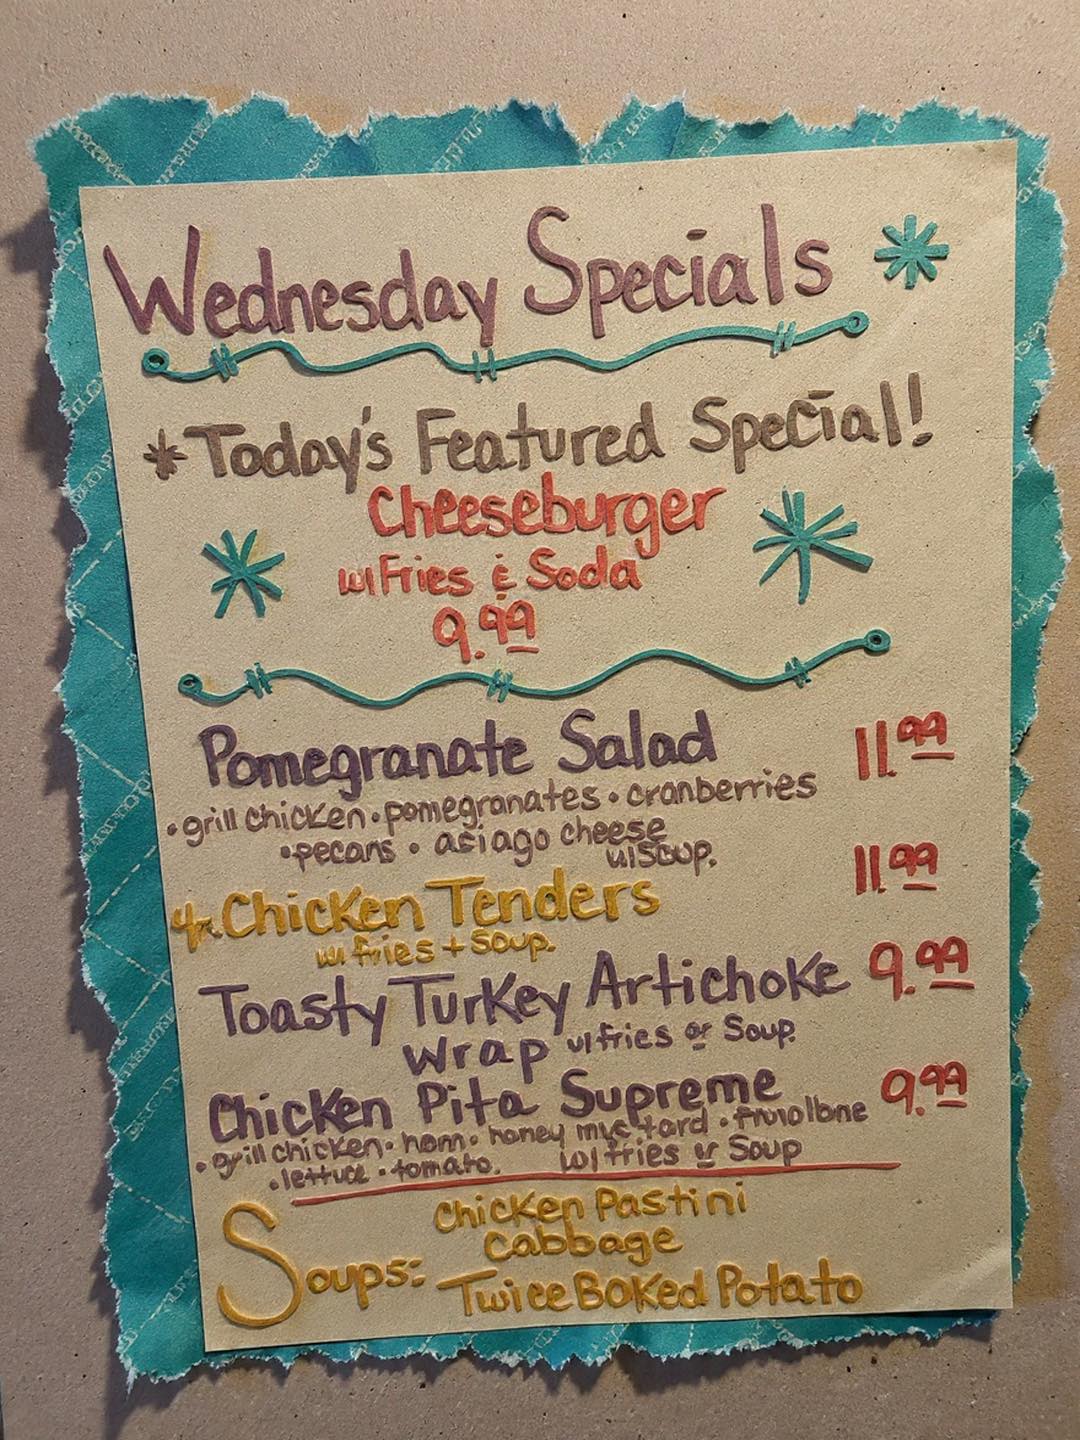 Wednesday Specials
*Today's Featured Special!
Cheeseburger
w/Fries & Soda
9.99
Pomegranate Salad 11.99
•grill chicken•pomegranates•cranberries
•pecans • asiago cheese
w/Soup.
4 Chicken Tenders 11.99
w/ fries + Soup.
Toasty Turkey Artichoke 9.99
Wrap w/fries or Soup.
Chicken Pita Supreme 9.99
•grill chicken• ham• honey mustard •
•lettuce •tomato. w/fries or Soup
Soups: Chicken Pastini
Cabbage
Twice Baked Potato